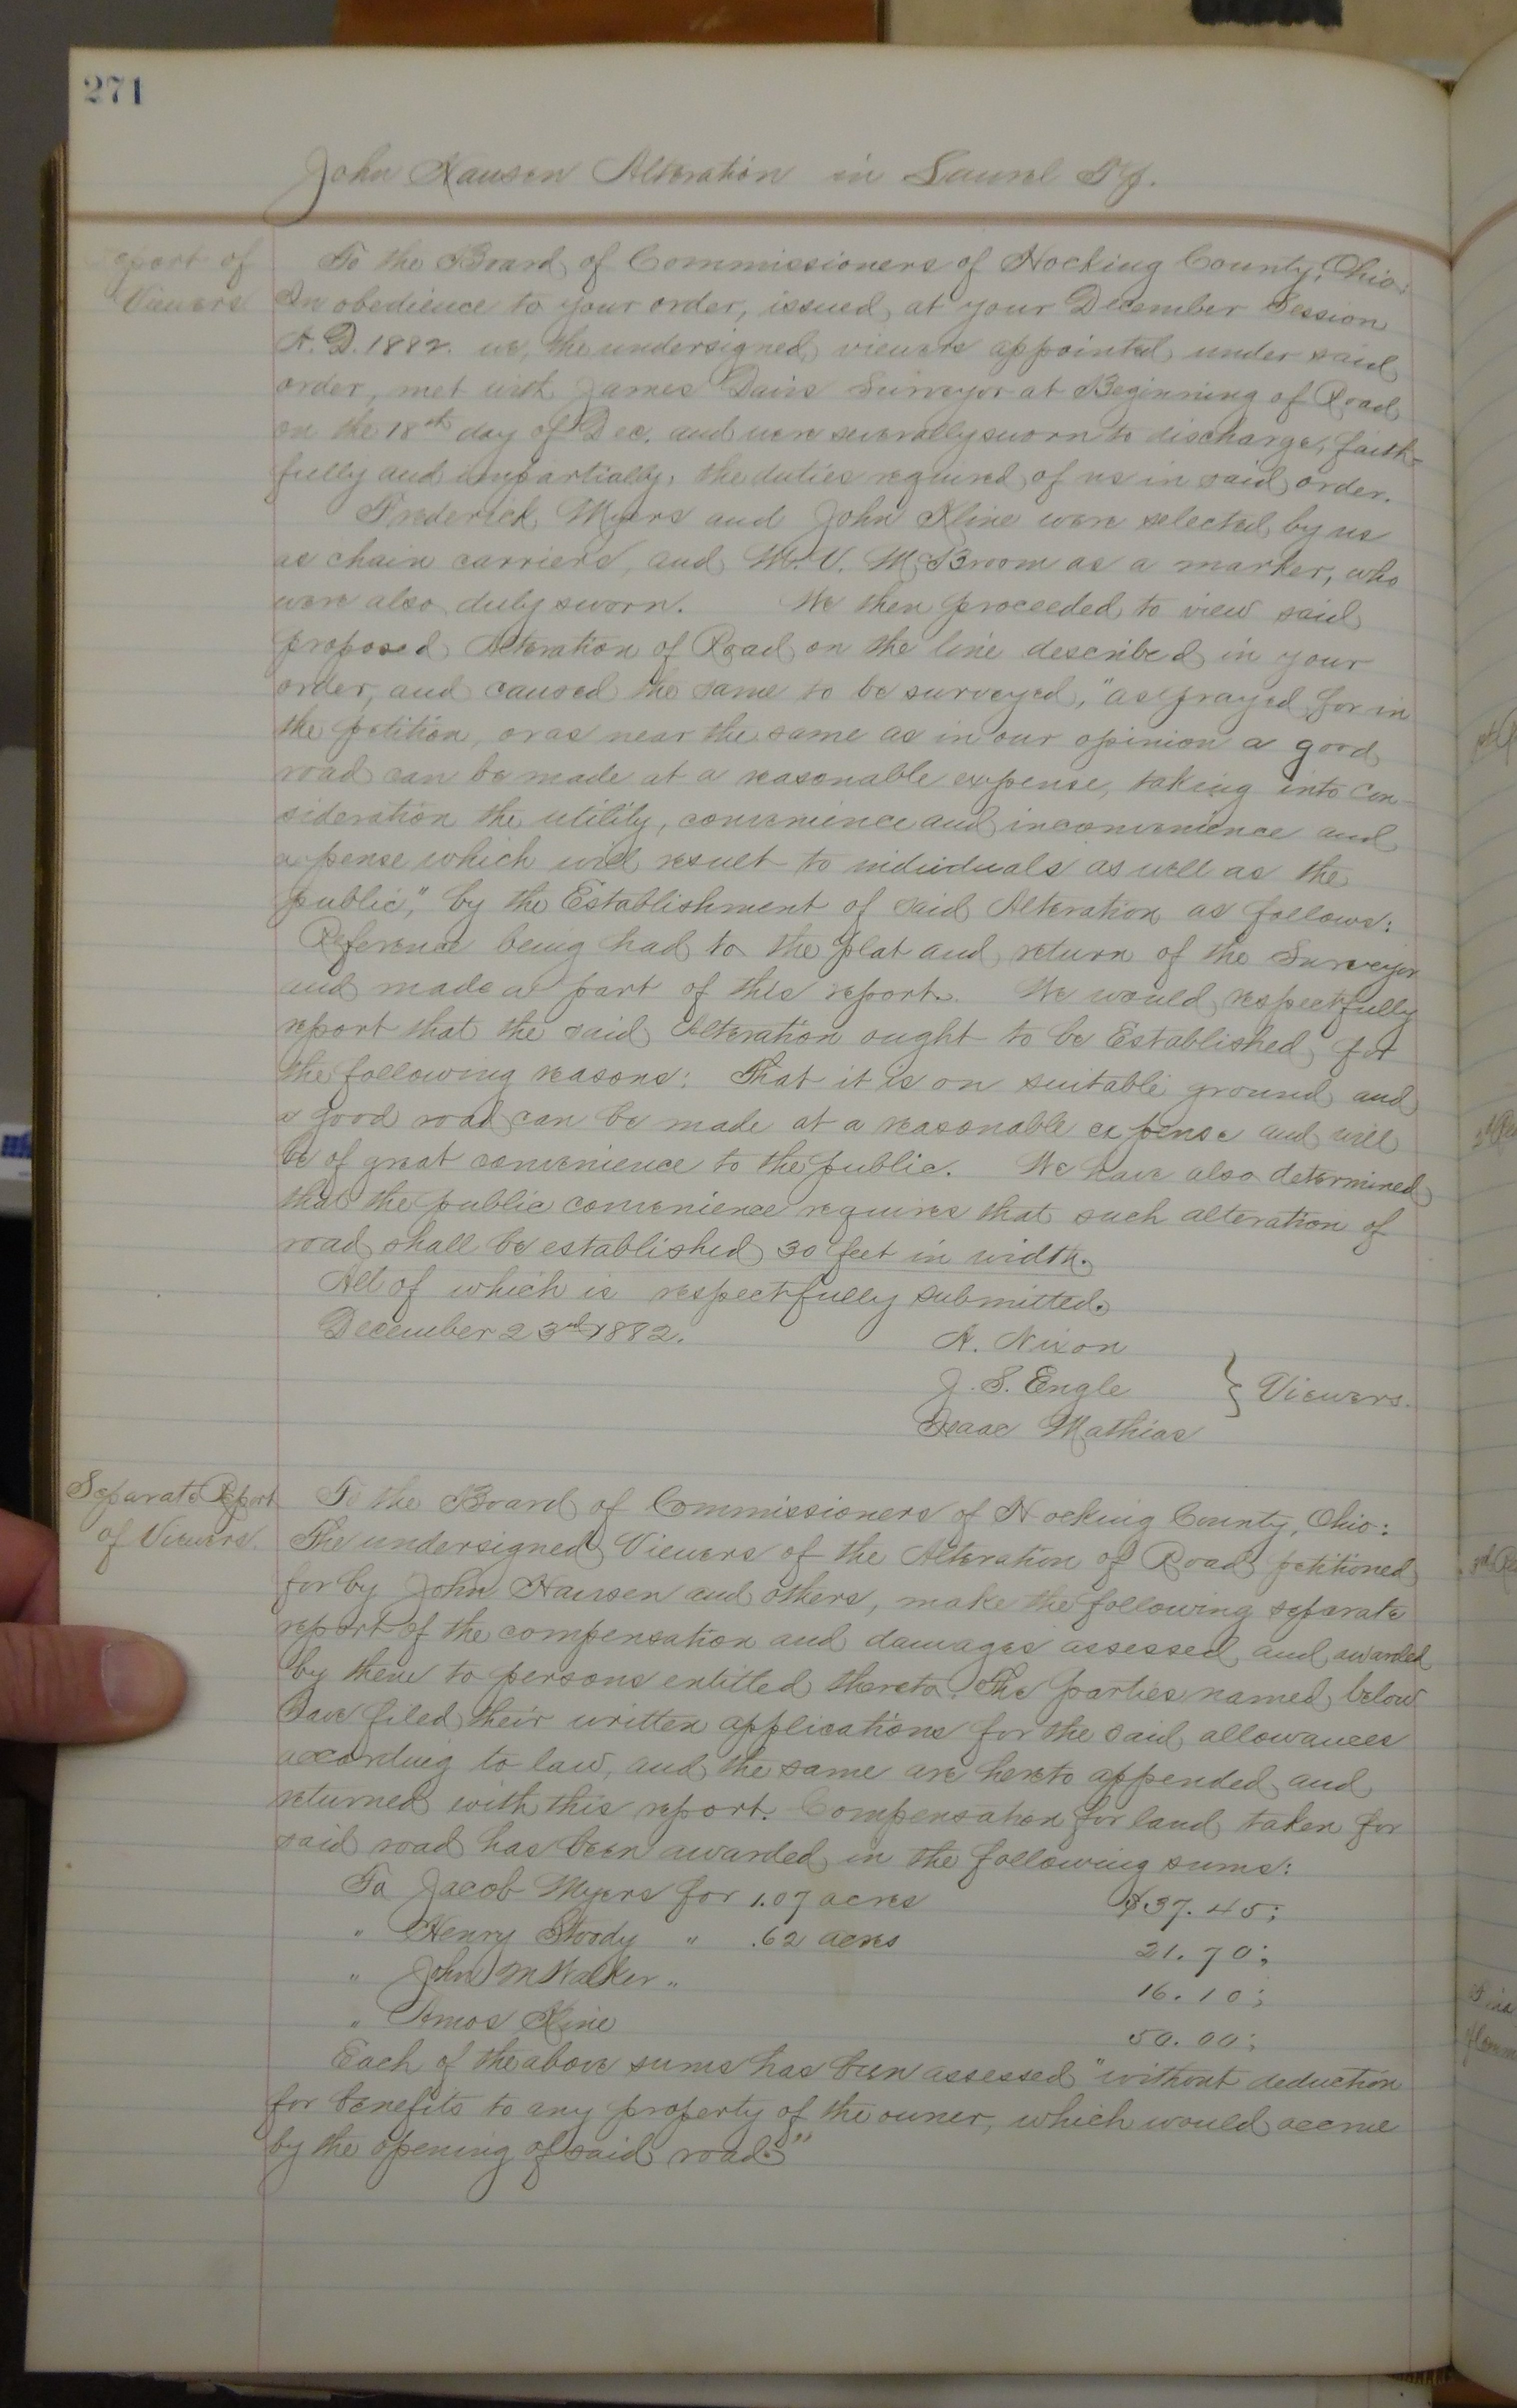 271
John Hansen Alteration in Laurel Tp.
eport of
Viewers
To the Board of Commissioners of Hocking County, Ohio:
In obedience to your order, issued at your December Session
A.D. 1882. we, the undersigned, viewers appointed under said
order, met with James Davis Surveyor at Beginning of Road
on the 18th day of Dec. and were severally sworn to discharge, faith-
fully and impartially, the duties required of us in said order.
Frederick Myers and John Kline were selected by us
as chain carriers, and V. McBroom as a marker, who
were also duly sworn. We then proceeded to view said
proposed Alteration of Road on the line described in your
order, and caused the same to be surveyed, "as prayed for in
the petition, or as near the same as in our opinion a good
road can be made at a reasonable expense, taking into con-
sideration the utility, convenience and inconvenience and
expense which will result to individuals as well as the
public," by the Establishment of said Alteration as follows:
Reference being had to the plat and return of the Surveyor
and made a part of this report. We would respectfully
report that the said Alteration ought to be Established for
the following reasons: That it is on suitable ground and
a good road can be made at a reasonable expense and will
be of great convenience to the public. We have also determined
that the public convenience requires that such alteration of
road shall be established 30 feet in width.
All of which is respectfully submitted.
December 23rd 1882.
Nixon
J. S. Engle } Viewers.
Isaac Mathias
Separate Report
of Viewers.
To the Board of Commissioners of Hocking County, Ohio:
The undersigned Viewers of the Alteration of Road petitioned
for by John Hansen and others, make the following separate
report of the compensation and damages assessed and awarded
by them to persons entitled thereto. The parties named below
have filed their written applications for the said allowances
according to law, and the same are hereto appended and
returned with this report. Compensation for land taken for
said road has been awarded in the following sums:
To Jacob Myers for 1.07 acres $37.45;
" Henry " .62 acres 21.70;
" John M Walker " 16.10;
" Amos Kline 50.00;
Each of the above sums has been assessed "without deduction
for benefits to any property of the owner, which would accrue
by the opening of said road."